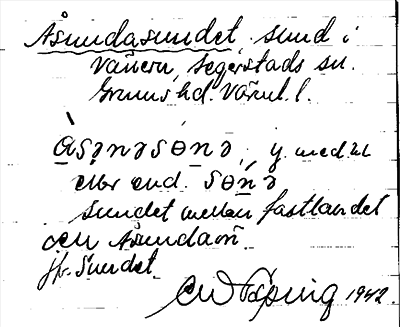 Åsundasundet, sund i
Vänern, Segerstads sn.
Grums hd. Värml. l.
åsənəsɵnə,
eller end. sɵnə
sundet mellan fastlandet
och Åsundaön.
jfr Sundet
1942.